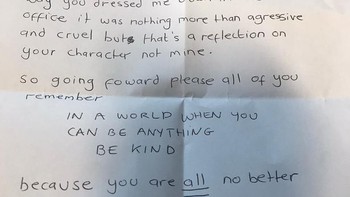 you dressed me
office it was nothing more than agressive
and cruel but that's a reflection on
your character not mine.
so going foward please all of you
remember
IN A WORLD WHEN YOU
CAN BE ANYTHING
BE KIND
because you are all no better